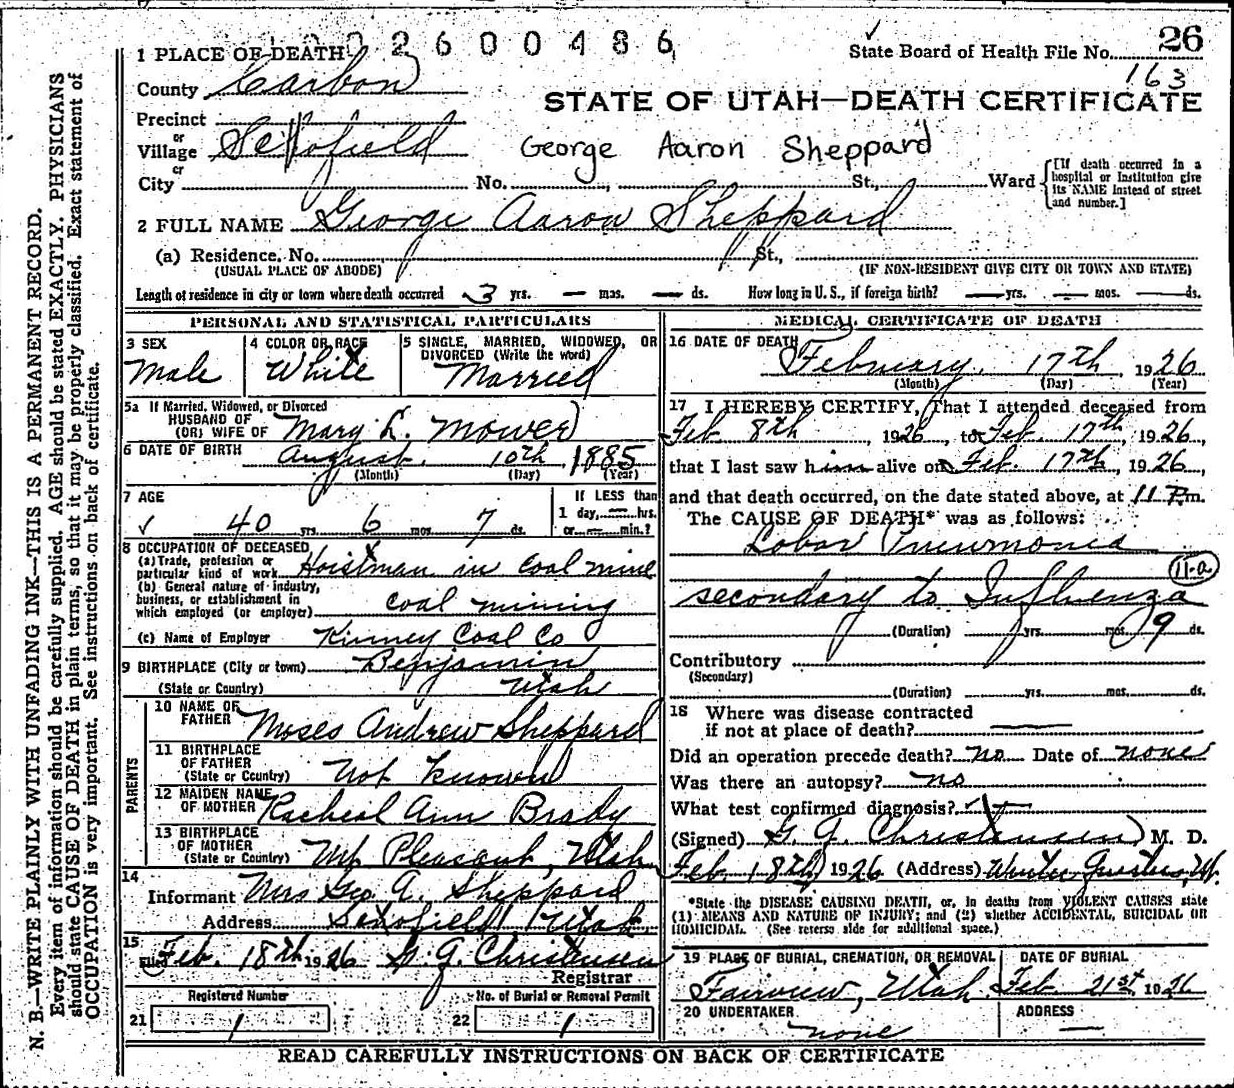 1 0 0 2 6 0 0 4 8 6
1 PLACE OF DEATH
State Board of Health File No. 26
163
County Carbon
STATE OF UTAH—DEATH CERTIFICATE
Precinct
or
Village Scofield
George Aaron Sheppard
or
City No. St., Ward
[If death occurred in a hospital or institution give its NAME instead of street and number.]
2 FULL NAME George Aaron Sheppard
(a) Residence. No. St.,
(USUAL PLACE OF ABODE) (IF NON-RESIDENT GIVE CITY OR TOWN AND STATE)
Length of residence in city or town where death occurred 3 yrs. — mos. — ds. How long in U. S., if foreign birth? — yrs. — mos. — ds.
PERSONAL AND STATISTICAL PARTICULARS
3 SEX
Male
4 COLOR OR RACE
White
5 SINGLE, MARRIED, WIDOWED, OR DIVORCED (Write the word)
Married
5a If Married, Widowed, or Divorced
HUSBAND OF
(OR) WIFE OF Mary L. Mower
6 DATE OF BIRTH August 10th 1885
(Month) (Day) (Year)
7 AGE
40 yrs. 6 mos. 7 ds.
If LESS than
1 day, — hrs.
or — min.?
8 OCCUPATION OF DECEASED
(a) Trade, profession or
particular kind of work Hoistman in coal mine
(b) General nature of industry,
business, or establishment in
which employed (or employer) coal mining
(c) Name of Employer Kinney Coal Co
9 BIRTHPLACE (City or town) Benjamin
(State or Country) Utah
PARENTS
10 NAME OF
FATHER Moses Andrew Sheppard
11 BIRTHPLACE
OF FATHER
(State or Country) Not known
12 MAIDEN NAME
OF MOTHER Racheal Ann Brady
13 BIRTHPLACE
OF MOTHER
(State or Country) Mt Pleasant, Utah
14
Informant Mrs Geo A. Sheppard
Address Scofield, Utah
15
Filed Feb. 18th 1926 G. J. Christensen
Registrar
Registered Number
21 1
No. of Burial or Removal Permit
22 1
MEDICAL CERTIFICATE OF DEATH
16 DATE OF DEATH
February 17th, 1926
(Month) (Day) (Year)
17 I HEREBY CERTIFY, That I attended deceased from
Feb. 8th, 1926, to Feb. 17th, 1926,
that I last saw him alive on Feb. 17th, 1926,
and that death occurred, on the date stated above, at 11 P.m.
The CAUSE OF DEATH* was as follows:
Lobar Pneumonia
11-a
secondary to Influenza
(Duration) yrs. mos. 9 ds.
Contributory
(Secondary)
(Duration) yrs. mos. ds.
18 Where was disease contracted
if not at place of death? —
Did an operation precede death? no Date of none
Was there an autopsy? no
What test confirmed diagnosis?
(Signed) G. J. Christensen M. D.
Feb. 18th, 1926 (Address) Winter Quarters, Ut.
*State the DISEASE CAUSING DEATH, or, in deaths from VIOLENT CAUSES state
(1) MEANS AND NATURE OF INJURY; and (2) whether ACCIDENTAL, SUICIDAL OR
HOMICIDAL. (See reverse side for additional space.)
19 PLACE OF BURIAL, CREMATION, OR REMOVAL
Fairview, Utah
DATE OF BURIAL
Feb 21st 1926
20 UNDERTAKER
none
ADDRESS
—
READ CAREFULLY INSTRUCTIONS ON BACK OF CERTIFICATE
N. B.—WRITE PLAINLY WITH UNFADING INK—THIS IS A PERMANENT RECORD.
Every item of information should be carefully supplied. AGE should be stated EXACTLY. PHYSICIANS
should state CAUSE OF DEATH in plain terms, so that it may be properly classified. Exact statement of
OCCUPATION is very important. See instructions on back of certificate.